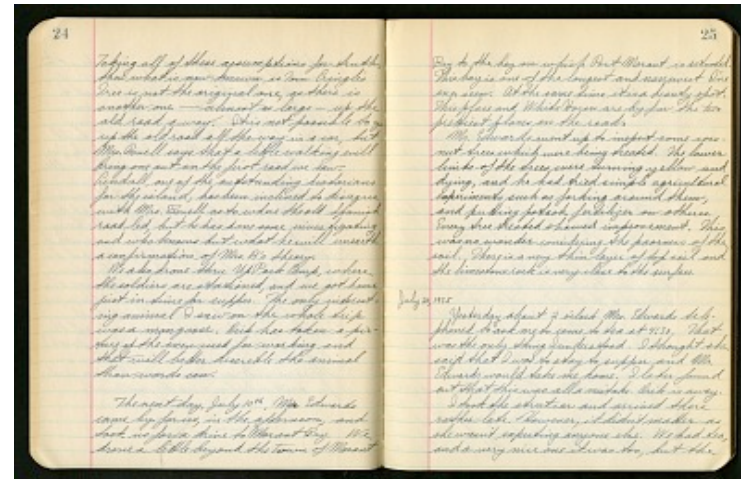 24
Taking all of these assumptions for truth,
that what is now known is Tom Cringle's
Tree is not the original one, as there is
another one — almost as large — up the
old road a way. It is not possible to go
up the old road all the way in a car, but
Mrs. Powell says that a little walking will
bring one out on the first road we saw.
one of the outstanding historians
for the island, has been inclined to disagree
with Mrs. Powell as to where the old Spanish
road led, but he has done some investigating
and who knows but what he will unearth
a confirmation of Mrs. P's theory.
We also drove thru Up Park Camp, where
the soldiers are stationed, and we got home
just in time for supper. The only interest-
ing animal I saw on the whole trip
was a mongoose. Erik has taken a pic-
ture of the even used for working and
that will better describe the animal
than words can.
The next day, July 10th, Mr. Edwards
came by for us, in the afternoon, and
took us for a drive to Morant Bay. We
drove a little beyond the town of Morant
25
Bay to the bay on which Port Morant is situated.
This bay is one of the longest and narrowest I've
ever seen. At the same time it is a beauty spot.
This place and White Horses are by far the two
prettiest places on the road.
Mr. Edwards went up to inspect some coco-
nut trees which were being treated. The lower
limbs of the trees were turning yellow and
dying, and he had tried simple agricultural
experiments such as forking around them,
and putting potash fertilizer on others.
Every tree treated showed improvement. This
was no wonder considering the poorness of the
soil. There is a very thin layer of top soil and
the limestone rock is very close to the surface.
July 24, 1935
Yesterday about 2 o'clock Mrs. Edwards tele-
phoned to ask me to come to tea at 4:30. That
was the only thing I understood. I thought she
said that I was to stay to supper, and Mr.
Edwards would take me home. I later found
out that this was all a mistake. Erik is away.
I took the and arrived there
rather late. However, it didn't matter as
she wasn't expecting anyone else. We had tea,
and a very nice one it was too, but the